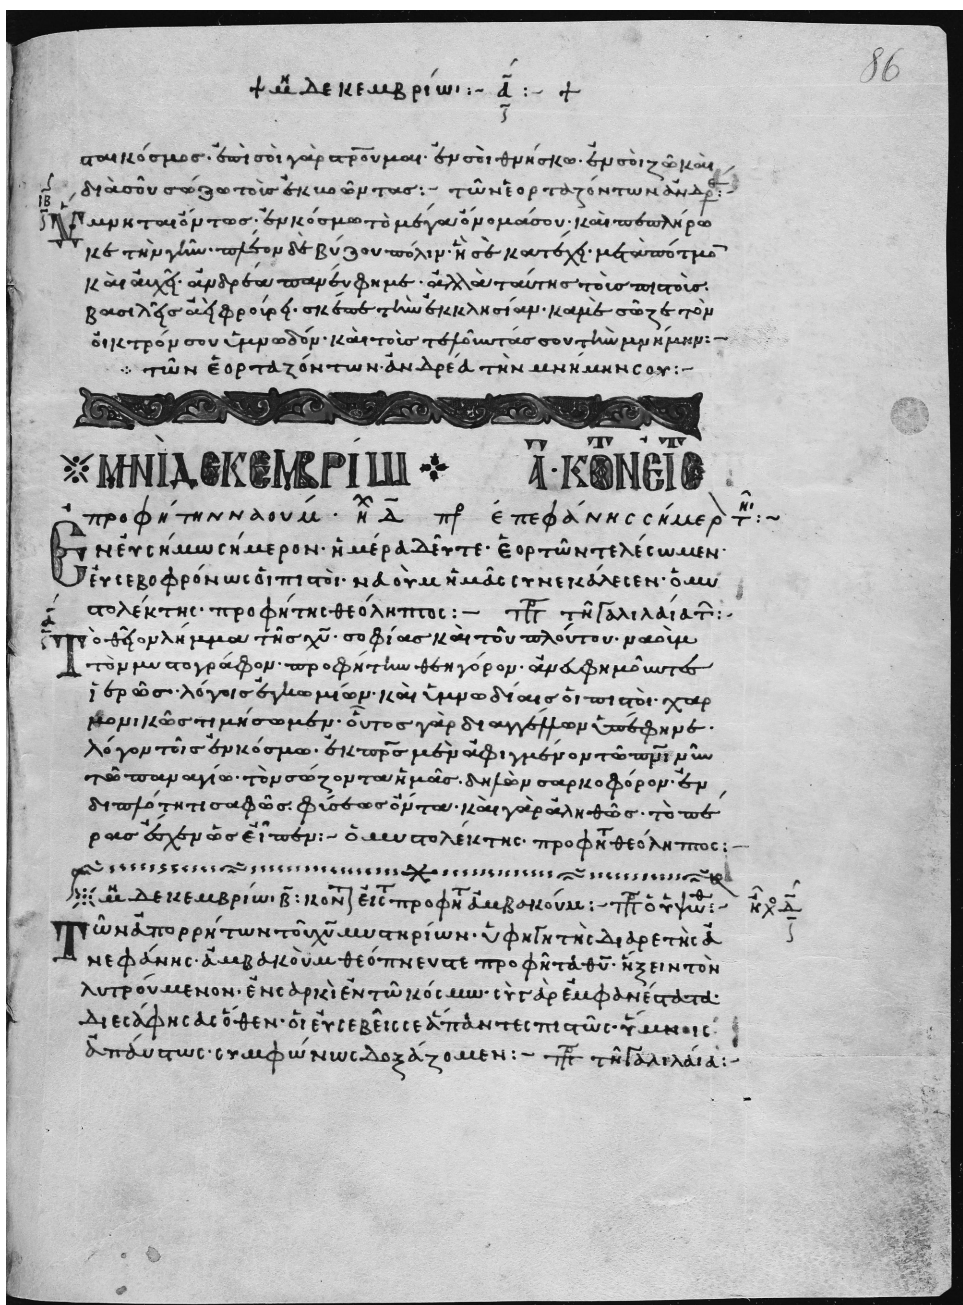 86
+ μη Δεκεμβρίωι :- ᾱ :- +
παικόσμος· ἐπὶ σοὶ γὰρ γέγονα· ἐν σοὶ θνήσκω· ἐν σοὶ ζῶ καὶ
διὰ σοῦ σώζω τοὺς ἐκβοῶντας :- τῶν ἑορταζόντων ἀνδρ :-
ιβ
Ὕμνηται ὄντως· ἐν κόσμω τὸ μέγα ὄνομά σου· καὶ πεπλήρω
κε τὴν γῆν· πλέον δὲ Βύζου πόλιν· ἥ σε κατέχει· μετὰ πότμον
καὶ αὐχεῖ· ἀνδρέα πανεύφημε· ἀλλὰ ταύτης τοῖς πιστοῖς
βασιλεῖς ἀεὶ φρούρει· σκέπε τὴν ἐκκλησίαν· καμὲ σῶζε τὸν
οἰκτρόν σου ὑμνωδόν· καὶ τοὺς τελοῦντάς σου τὴν μνήμην :-
τῶν ἑορταζόντων ἀνδρέα τὴν μνήμην σου :-
ΜΗΝῚ ΔΕΚΕΜΒΡΊΩ Ᾱ· ΚΟΝ ΕΙΣ
προφήτην ναούμ· ἦχ Δ̄ πρ ἐπεφάνης σήμερ τῆι :-
Ἐν εὐσήμω σήμερον· ἡμέρα δεῦτε· ἑορτῶν τελέσωμεν·
εὐσεβοφρόνως οἱ πιστοὶ· ναοὺμ ἡμᾶς συνεκάλεσεν· ὁ μυ
στολέκτης· προφήτης θεόληπτος :- πρ τῆ Γαλιλαία τ :-
ᾱ
Τὸ θεῖον λῆμμα τῆς χυ· σοφίας καὶ τοῦ πλούτου· ναοὺμ
τὸν μυστογράφον· προφήτην θεηγόρον· ἀνευφημοῦντες
ἱερῶς· λόγοις ἐγκωμίων· καὶ ὑμνωδίαις οἱ πιστοὶ· χαρ
μονικῶς τιμήσωμεν· οὗτος γὰρ διαγγέλλων ὑπέφηνε·
λόγον τοῖς ἐν κόσμω· ἐκ πρς μὲν ἀφιγμένον τῶ πνι μὴν
τῶ παναγίω· τὸν σώζοντα ἡμᾶς· δηλῶν σαρκοφόρον· ἐν
διπλότητι σαφῶς· φύσεως ὄντα· καὶ γὰρ ἀληθῶς· τὸ πέ
ρας ἔσχεν ὡς εἶπεν :- ὁ μυστολέκτης· προφη θεόληπτος :-
μη Δεκεμβρίωι β̄ : κον εἰς τ προφη ἀμβακούμ :- πρ ὁ ὑψωθ :- ἦχ Δ̄
Τῶν ἀπορρήτων τοῦ χυ μυστηρίων· ὑφηγητὴς διαρετῆς ἀ
νεφάνης· ἀμβακοὺμ θεόπνευστε προφῆτα θυ· ἥξειν τὸν
λυτρούμενον· ἐν σαρκὶ ἐν τῶ κόσμω· σὺ γὰρ ἐμφανέστατα
διεσάφησας ὅθεν· οἱ εὐσεβεῖς σε ἅπαντες πιστῶς· ὕμνοις
ἀπαύστως· συμφώνως δοξάζομεν :- πρ τῆ Γαλιλαία :-